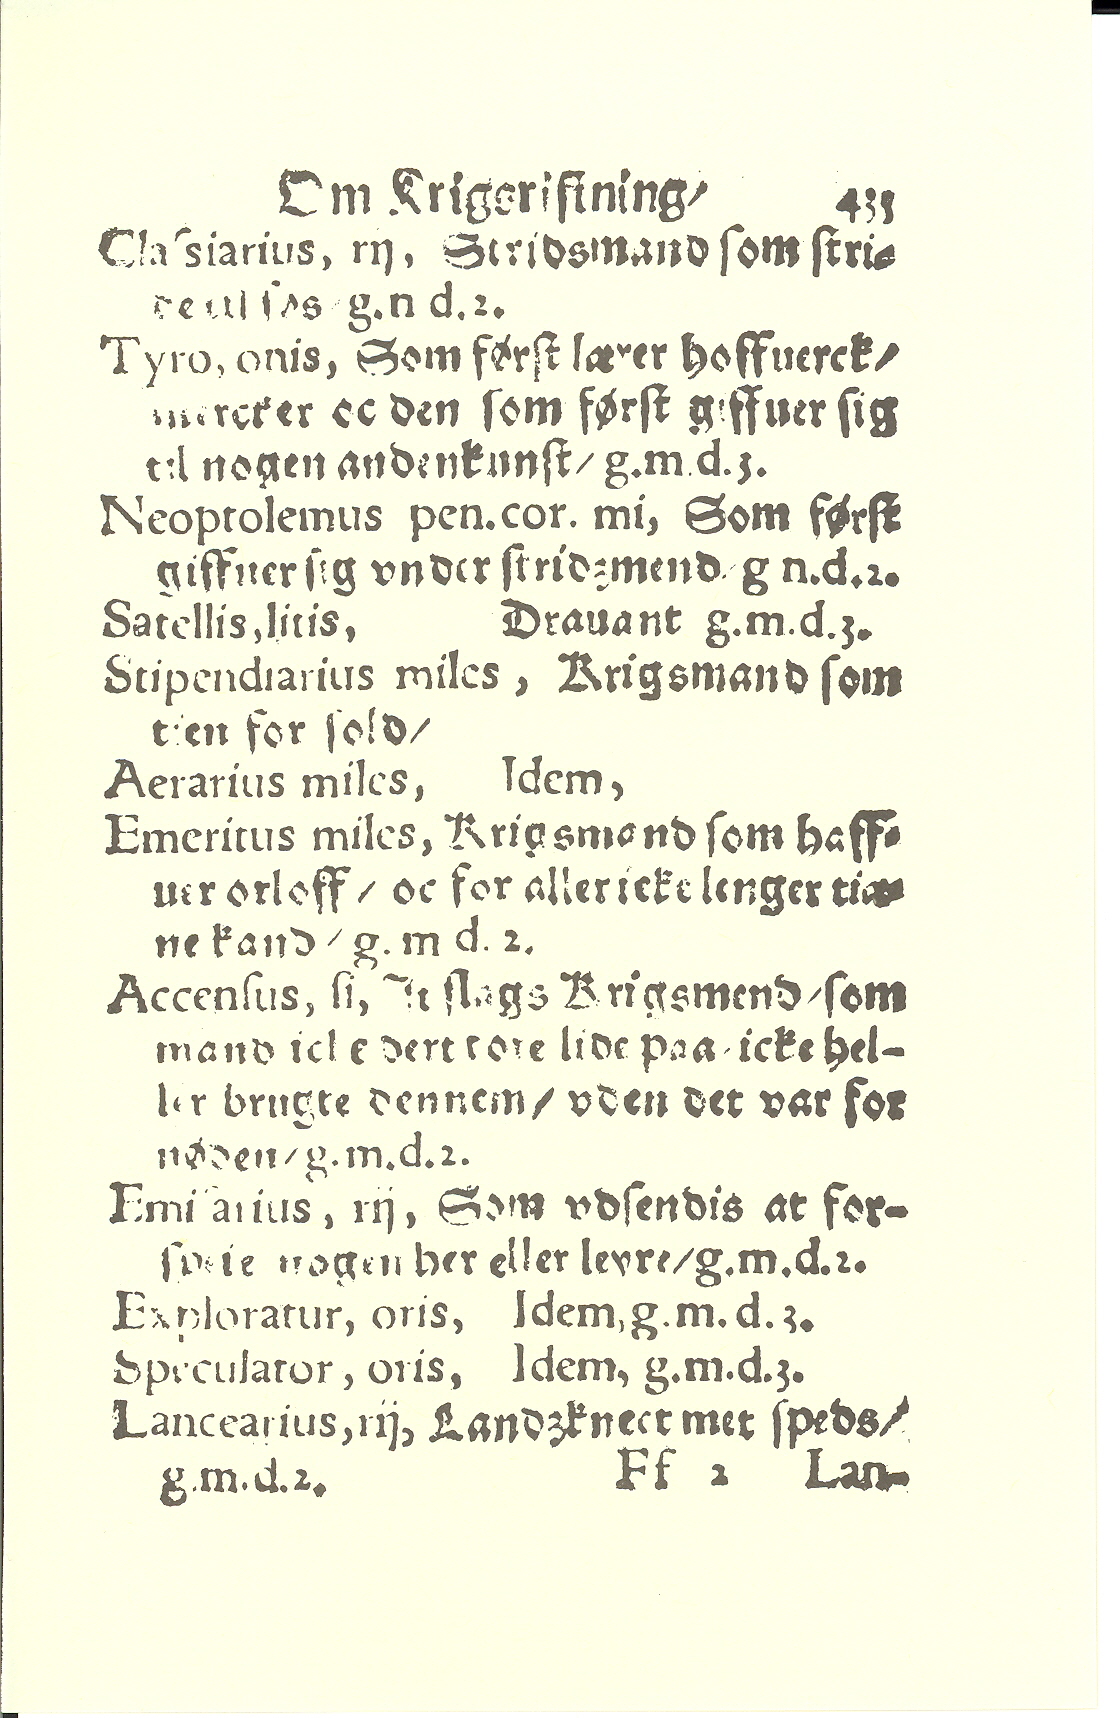 Om Krigsristning/ 433
Classiarius, rij, Stridsmand som stri-
de til søs/g.n d.2.
Tyro, onis, Som først lærer hoffuerck/
mercker oc den som først giffuer sig
til nogen anden kunst/g.m.d.3.
Neoptolemus pen.cor. mi, Som først
giffuer sig vnder stridzmend/g n.d.2.
Satellis,litis, Drauant g.m.d.3.
Stipendiarius miles, Krigsmand som
tien for sold/
Aerarius miles, Idem,
Emeritus miles, Krigsmand som haff-
uer orloff/ oc for aller icke lenger tiæ-
ne kand/g. m d. 2.
Accensus, si, It slags Krigsmend/som
mand icke dert tore lide paa/icke hel-
ler brugte dennem/ vden det var for
nøden/g.m.d.2.
Emissarius, rij, Som vdsendis at for-
speie nogen her eller leyre/g.m.d.2.
Exploratur, oris, Idem,g.m.d.3.
Speculator, oris, Idem, g.m.d.3.
Lancearius,rij, Landzknect met speds/
g.m.d.2. Ff 2 Lan-